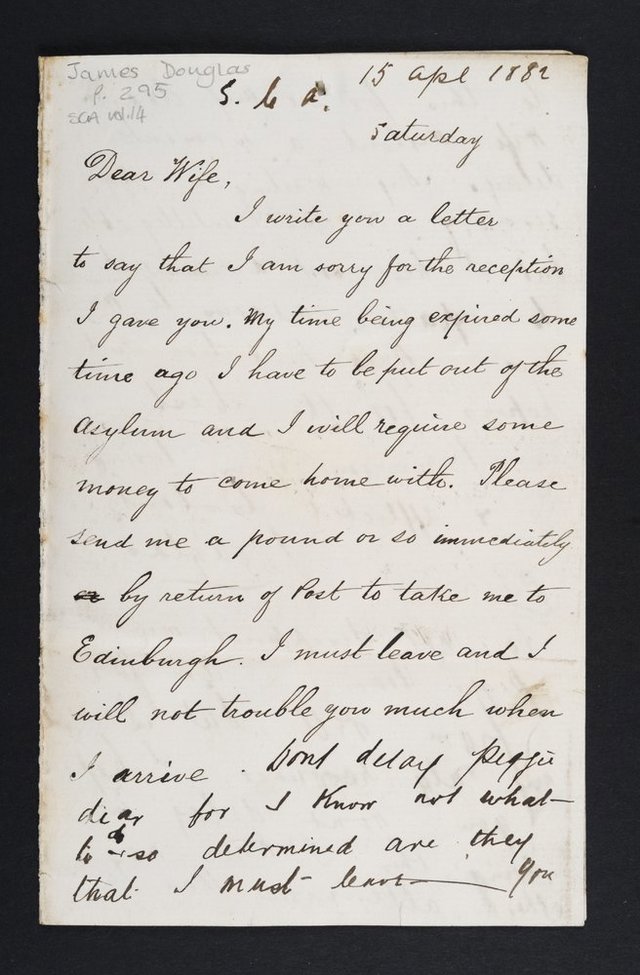 James Douglas
p. 295
SGA vol.14
15 Apl 1882
S. G. A.
Saturday
Dear Wife,
I write you a letter
to say that I am sorry for the reception
I gave you. My time being expired some
time ago I have to be put out of the
Asylum and I will require some
money to come home with. Please
send me a pound or so immediately
or by return of Post to take me to
Edinburgh. I must leave and I
will not trouble you much when
I arrive. Dont delay Peggie
dear for I Know not what
to do so determined are they
that I must leave — You